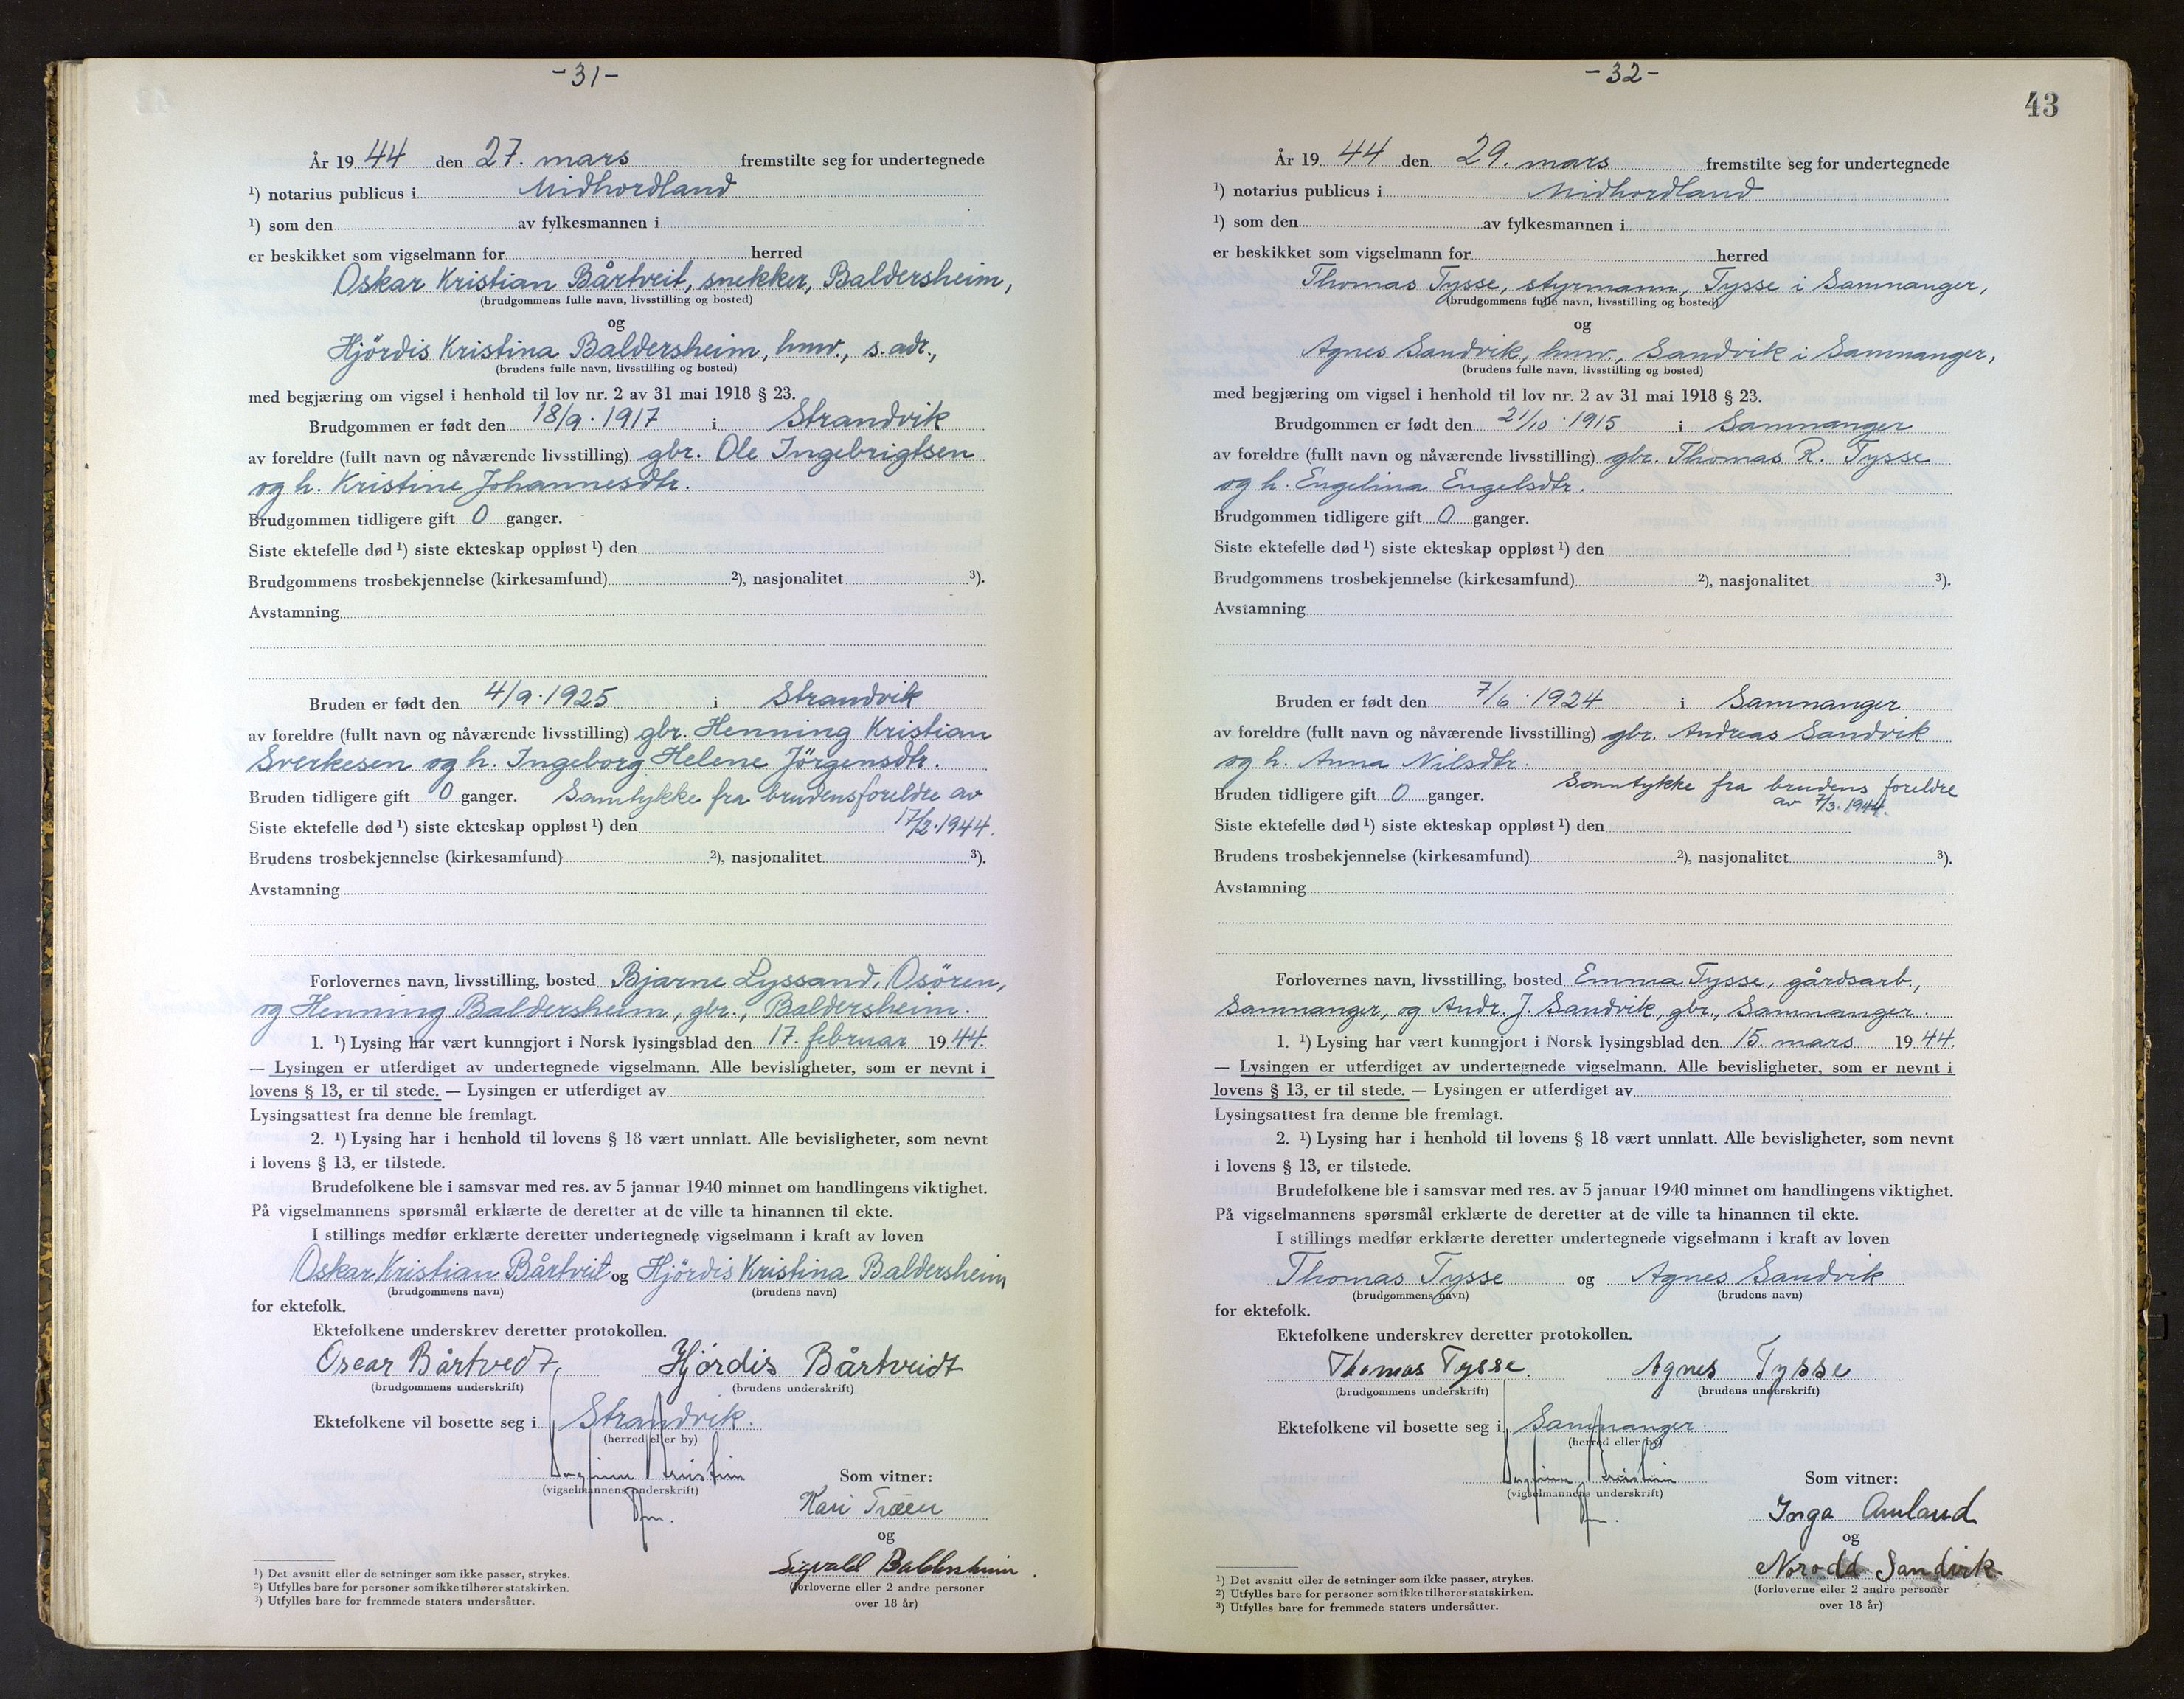 -31-
År 19 44 den 27. mars fremstilte seg for undertegnede
¹) notarius publicus i Midhordland
¹) som den av fylkesmannen i
er beskikket som vigselmann for herred
Oskar Kristian Bårtveit, snekker, Baldersheim,
(brudgommens fulle navn, livsstilling og bosted)
og
Hjördis Kristina Baldersheim, hmv., s. adr.,
(brudens fulle navn, livsstilling og bosted)
med begjæring om vigsel i henhold til lov nr. 2 av 31 mai 1918 § 23.
Brudgommen er født den 18/9·1917 i Strandvik
av foreldre (fullt navn og nåværende livsstilling) gbr. Ole Ingebrigtsen
og h. Kristine Johannesdtr.
Brudgommen tidligere gift 0 ganger.
Siste ektefelle død ¹) siste ekteskap oppløst ¹) den
Brudgommens trosbekjennelse (kirkesamfund) ²), nasjonalitet ³).
Avstamning
Bruden er født den 4/9·1925 i Strandvik
av foreldre (fullt navn og nåværende livsstilling) gbr. Henning Kristian
Sverkesen og h. Ingeborg Helene Jörgensdtr.
Bruden tidligere gift 0 ganger. Samtykke fra brudens foreldre av
Siste ektefelle død ¹) siste ekteskap oppløst ¹) den 17/2·1944.
Brudens trosbekjennelse (kirkesamfund) ²), nasjonalitet ³).
Avstamning
Forlovernes navn, livsstilling, bosted Bjarne Lyssand, Osören,
og Henning Baldersheim, gbr., Baldersheim.
1. ¹) Lysing har vært kunngjort i Norsk lysingsblad den 17. februar 19 44.
— Lysingen er utferdiget av undertegnede vigselmann. Alle bevisligheter, som er nevnt i
lovens § 13, er til stede. — Lysingen er utferdiget av
Lysingsattest fra denne ble fremlagt.
2. ¹) Lysing har i henhold til lovens § 18 vært unnlatt. Alle bevisligheter, som nevnt
i lovens § 13, er tilstede.
Brudefolkene ble i samsvar med res. av 5 januar 1940 minnet om handlingens viktighet.
På vigselmannens spørsmål erklærte de deretter at de ville ta hinannen til ekte.
I stillings medfør erklærte deretter undertegnede vigselmann i kraft av loven
Oskar Kristian Bårtveit og Hjördis Kristina Baldersheim
(brudgommens navn) (brudens navn)
for ektefolk.
Ektefolkene underskrev deretter protokollen.
Oscar Bårtvedt, Hjørdis Bårtveidt
(brudgommens underskrift) (brudens underskrift)
Ektefolkene vil bosette seg i Strandvik.
(herred eller by)
(vigselmannens underskrift)
Som vitner:
Kari Træen
og
Sigvald Baldersheim.
(forloverne eller 2 andre personer
over 18 år)
¹) Det avsnitt eller de setninger som ikke passer, strykes.
²) Utfylles bare for personer som ikke tilhører statskirken.
³) Utfylles bare for fremmede staters undersåtter.
-32-
43
År 19 44 den 29. mars fremstilte seg for undertegnede
¹) notarius publicus i Midhordland
¹) som den av fylkesmannen i
er beskikket som vigselmann for herred
Thomas Tysse, styrmann, Tysse i Samnanger,
(brudgommens fulle navn, livsstilling og bosted)
og
Agnes Sandvik, hmv., Sandvik i Samnanger,
(brudens fulle navn, livsstilling og bosted)
med begjæring om vigsel i henhold til lov nr. 2 av 31 mai 1918 § 23.
Brudgommen er født den 21/10·1915 i Samnanger
av foreldre (fullt navn og nåværende livsstilling) gbr. Thomas R. Tysse
og h. Engelina Engelsdtr.
Brudgommen tidligere gift 0 ganger.
Siste ektefelle død ¹) siste ekteskap oppløst ¹) den
Brudgommens trosbekjennelse (kirkesamfund) ²), nasjonalitet ³).
Avstamning
Bruden er født den 7/6·1924 i Samnanger
av foreldre (fullt navn og nåværende livsstilling) gbr. Andreas Sandvik
og h. Anna Nilsdtr.
Bruden tidligere gift 0 ganger. Samtykke fra brudens foreldre
av 7/3·1944.
Siste ektefelle død ¹) siste ekteskap oppløst ¹) den
Brudens trosbekjennelse (kirkesamfund) ²), nasjonalitet ³).
Avstamning
Forlovernes navn, livsstilling, bosted Emma Tysse, gårdsarb,
Samnanger, og Andr. J. Sandvik, gbr., Samnanger.
1. ¹) Lysing har vært kunngjort i Norsk lysingsblad den 15. mars 19 44.
— Lysingen er utferdiget av undertegnede vigselmann. Alle bevisligheter, som er nevnt i
lovens § 13, er til stede. — Lysingen er utferdiget av
Lysingsattest fra denne ble fremlagt.
2. ¹) Lysing har i henhold til lovens § 18 vært unnlatt. Alle bevisligheter, som nevnt
i lovens § 13, er tilstede.
Brudefolkene ble i samsvar med res. av 5 januar 1940 minnet om handlingens viktighet.
På vigselmannens spørsmål erklærte de deretter at de ville ta hinannen til ekte.
I stillings medfør erklærte deretter undertegnede vigselmann i kraft av loven
Thomas Tysse og Agnes Sandvik
(brudgommens navn) (brudens navn)
for ektefolk.
Ektefolkene underskrev deretter protokollen.
Thomas Tysse. Agnes Tysse
(brudgommens underskrift) (brudens underskrift)
Ektefolkene vil bosette seg i Samnanger.
(herred eller by)
(vigselmannens underskrift)
Som vitner:
Inga Amland
og
Norodd Sandvik.
(forloverne eller 2 andre personer
over 18 år)
¹) Det avsnitt eller de setninger som ikke passer, strykes.
²) Utfylles bare for personer som ikke tilhører statskirken.
³) Utfylles bare for fremmede staters undersåtter.